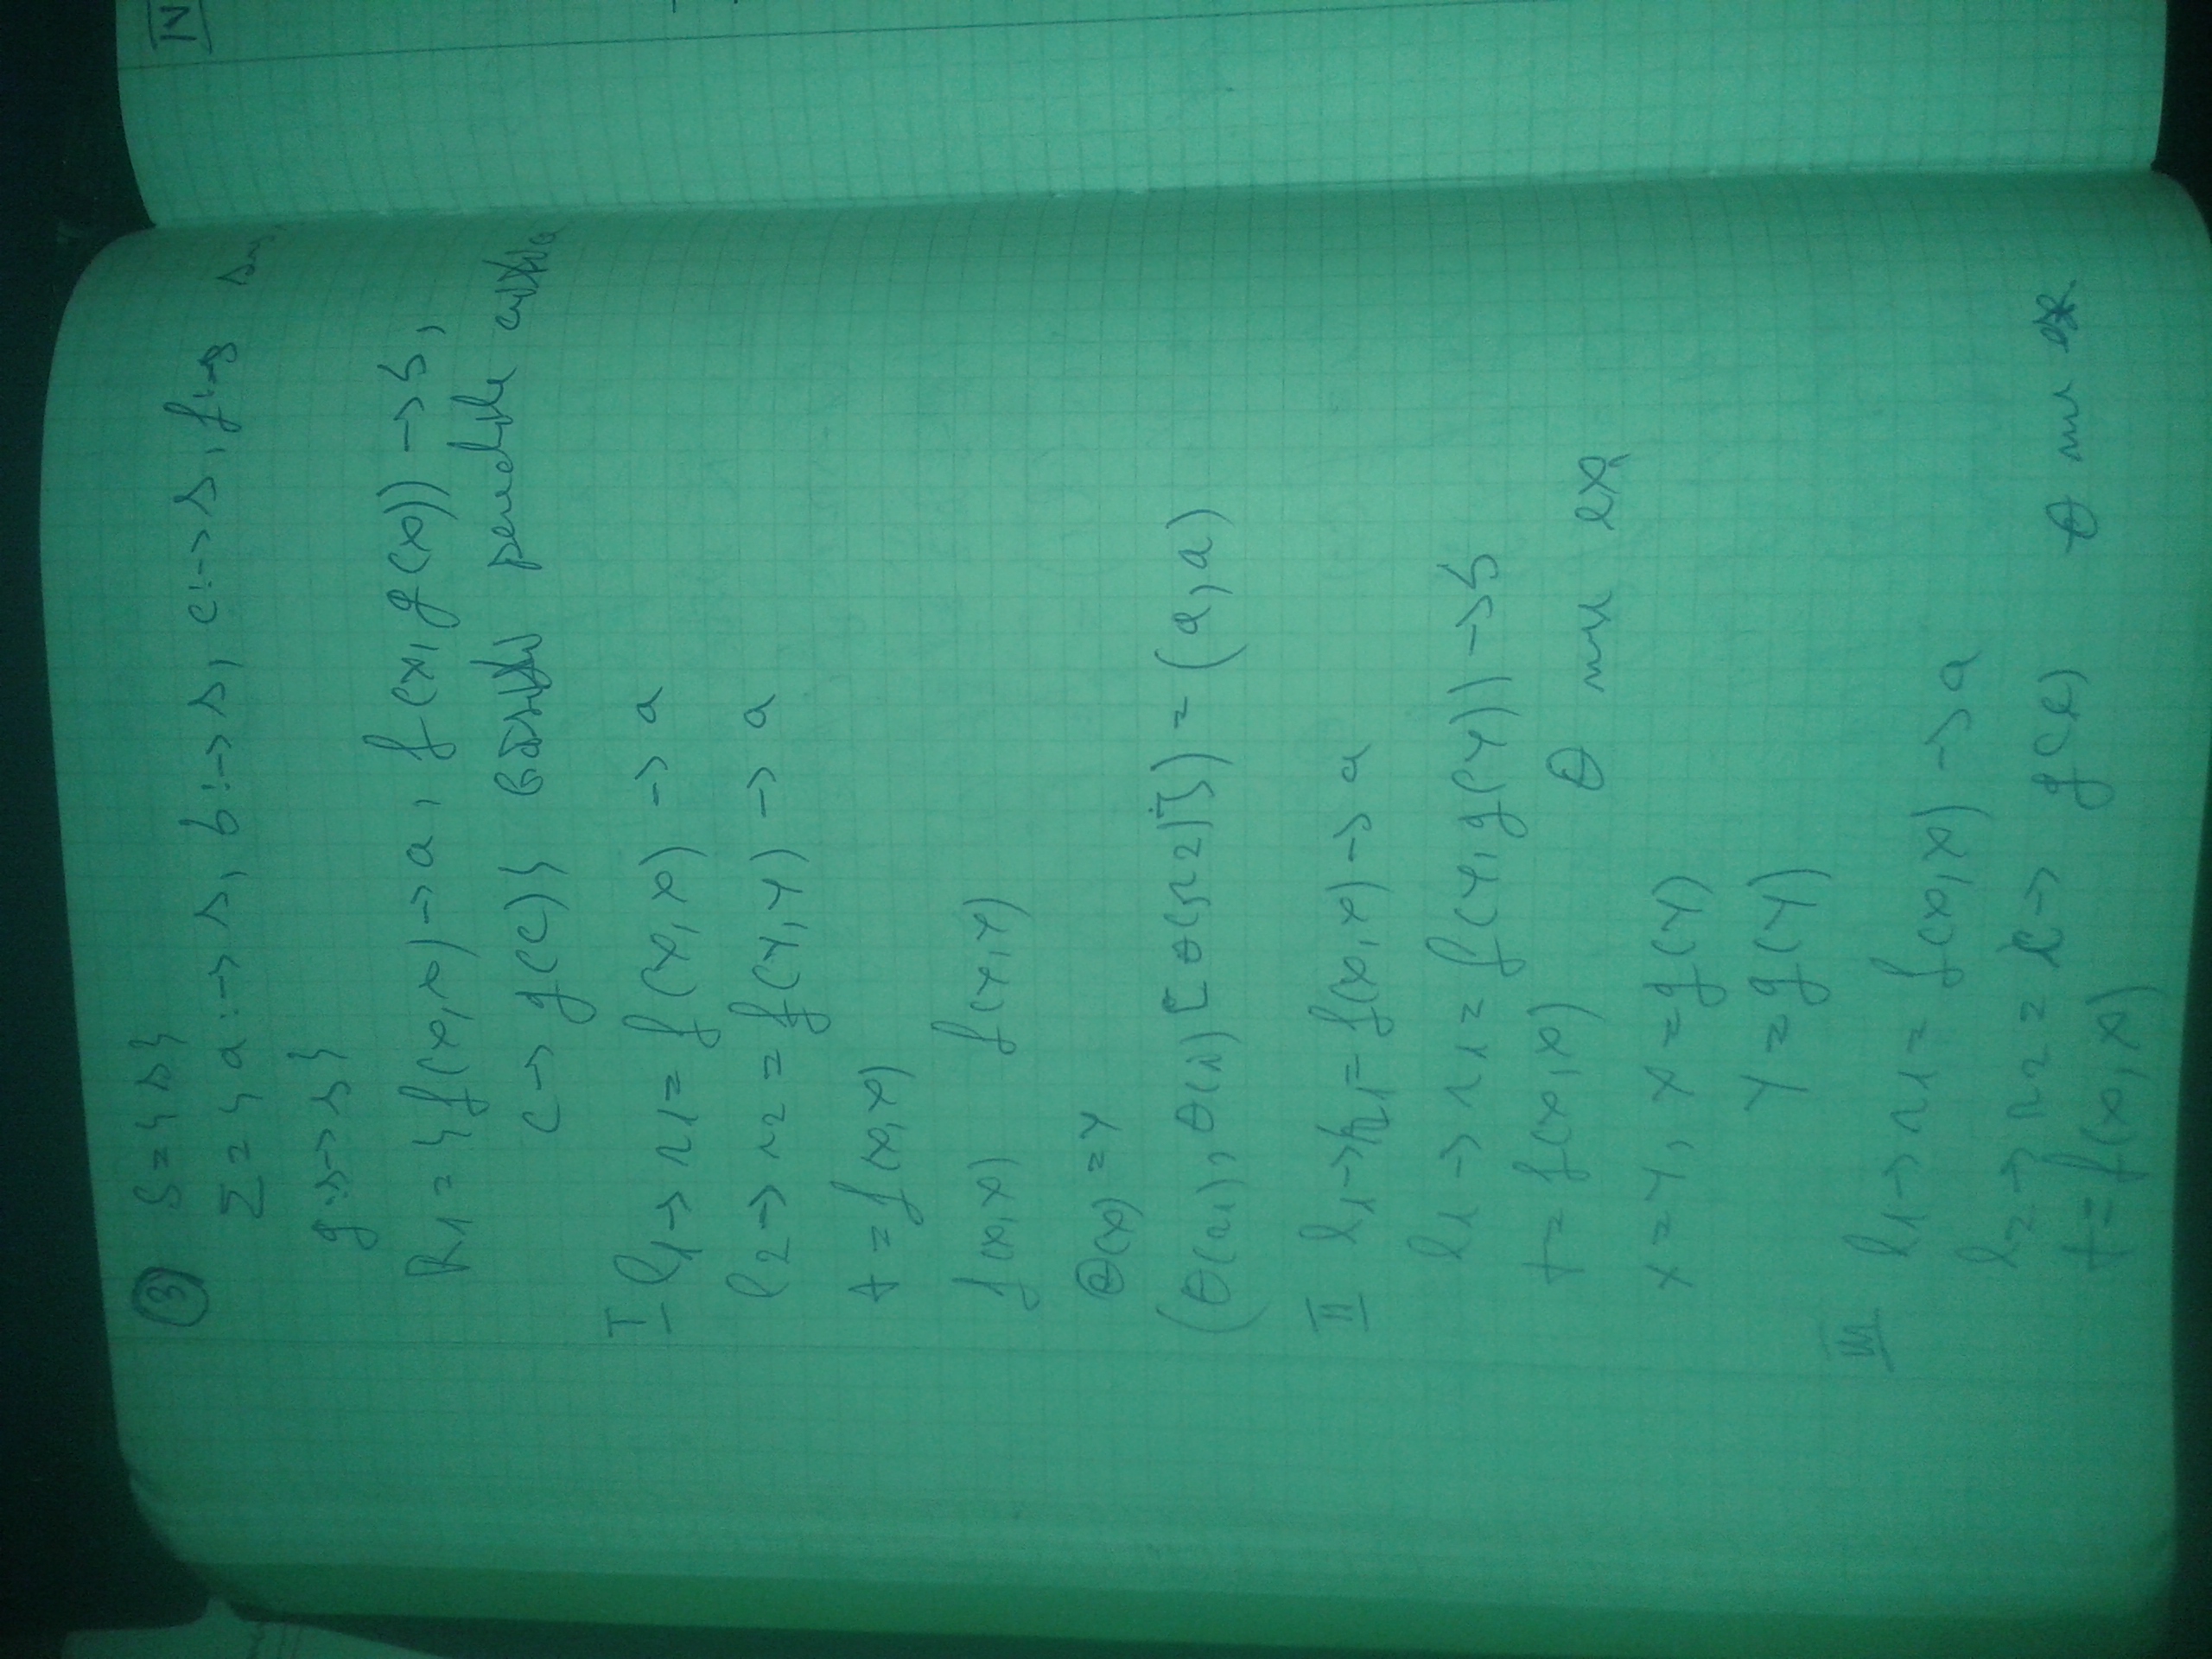 ③ S = { s }
Σ = { a : → s, b : → s, c : → s, f : → s
IV
g : s → s }
R1 = { f(x, x) → a, f(x, g(x)) → b,
c → g(c) }
I l1 → r1 = f(x, x) → a
l2 → r2 = f(y, y) → a
t = f(x, x)
f(x, x) f(y, y)
θ(x) = y
(θ(r1), θ(t) [θ(r2)]) = (a, a)
II l1 → r1 = f(x, x) → a
l1 → r1 = f(y, g(y)) → b
t = f(x, x) θ nu ex.
x = y, x = g(y)
y = g(y)
III l1 → r1 = f(x, x) → a
l2 → r2 = c → g(c) θ nu ex
t = f(x, x)